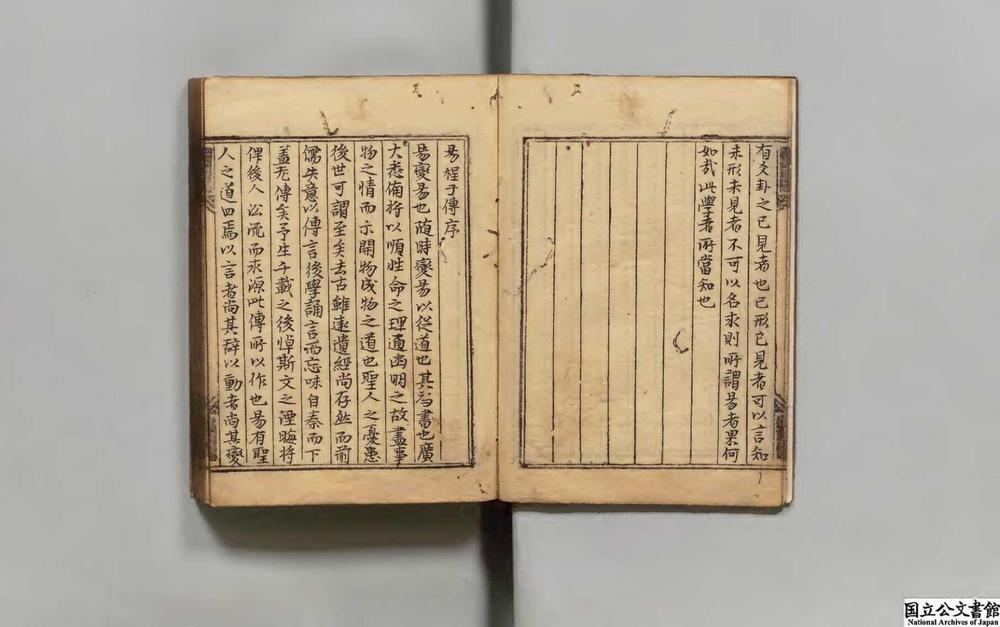 有爻卦之已見者也已形已見者可以言知
未形未見者不可以名求則所謂易者果何
如哉此學者所當知也
易程子傳序
易變易也随時變易以從道也其為書也廣
大悉俻将以順性命之理通幽明之故盡事
物之情而示開物成物之道也聖人之憂患
後世可謂至矣去古雖遠遺經尚存然而前
儒失意以傳言後學誦言而忘味自秦而下
盖无傳矣予生千載之後悼斯文之湮晦将
俾後人沿流而求源此傳所以作也易有聖
人之道四焉以言者尚其辭以動者尚其變
国立公文書館
National Archives of Japan